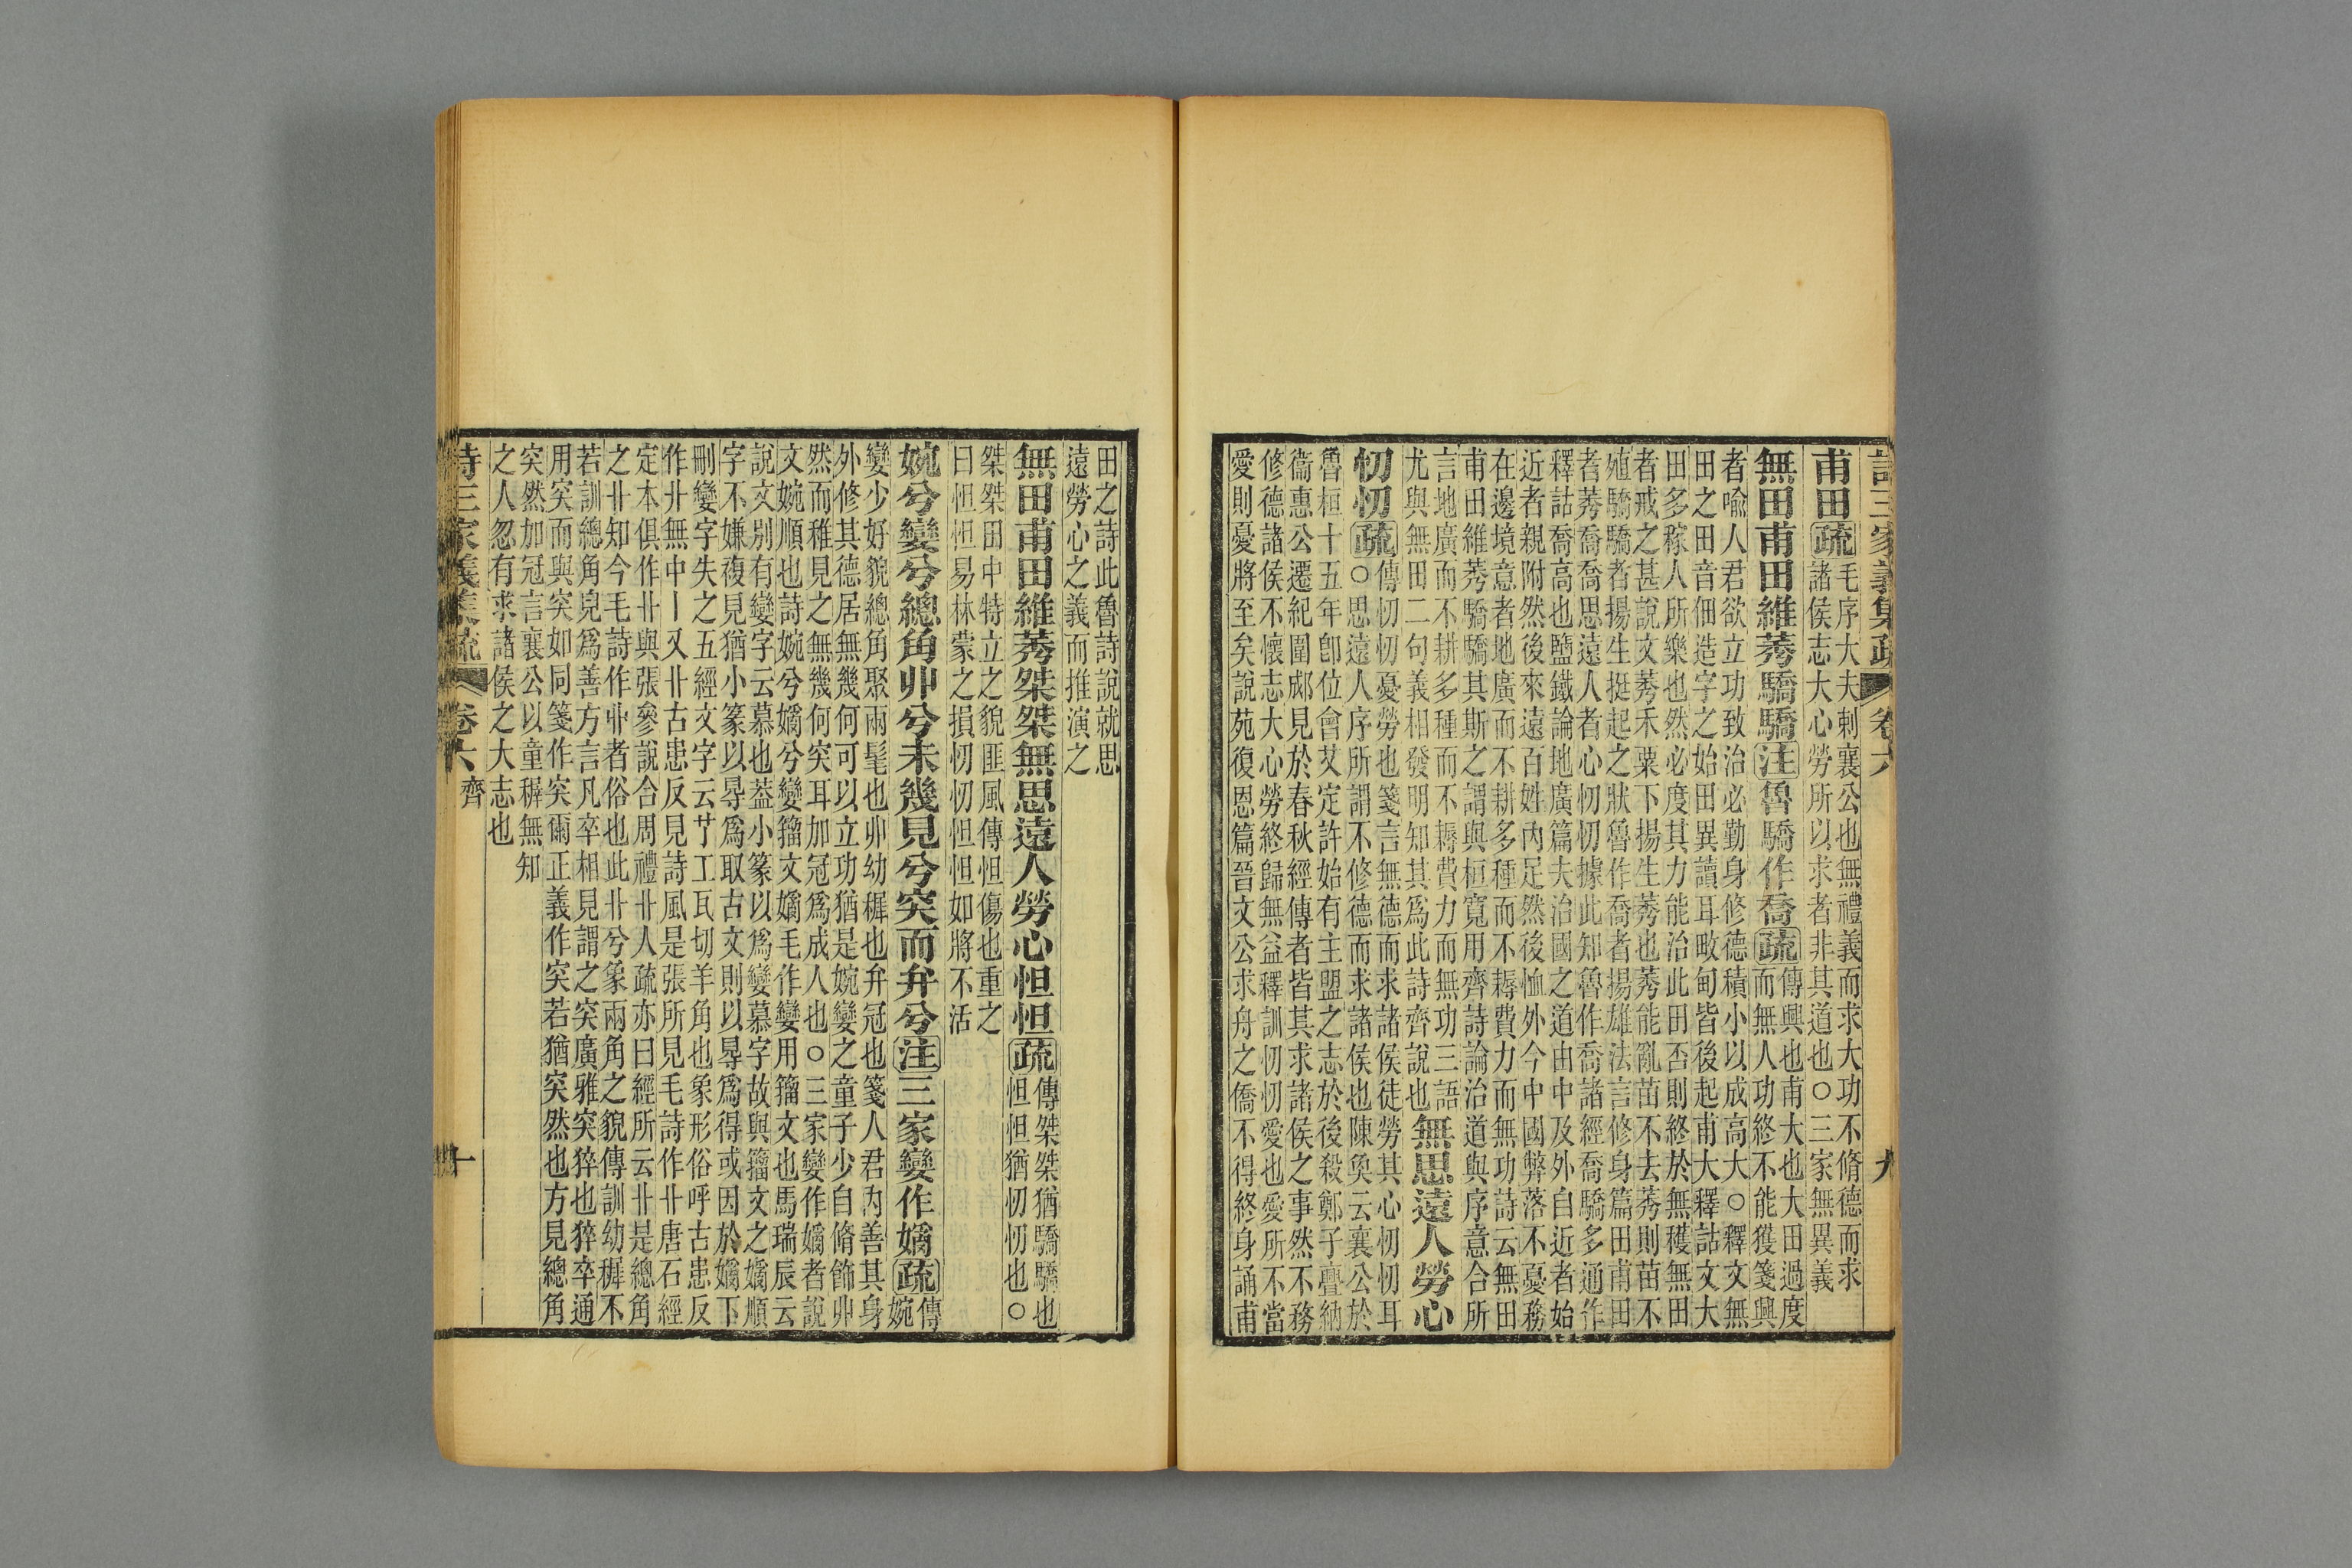 詩三家義集疏 卷六 九
甫田疏毛序大夫刺襄公也無禮義而求大功不脩德而求
諸侯志大心勞所以求者非其道也○三家無異義
無田甫田維莠驕驕注魯驕作喬疏傳興也甫大也大田過度
而無人功終不能獲箋興
者喻人君欲立功致治必勤身修德積小以成高大○釋文無
田之田音佃造字之始田異讀耳畋甸皆後起甫大釋詁文大
田多稼人所樂也然必度其力能治此田否則終於無穫無田
者戒之甚說文莠禾粟下揚生莠也莠能亂苗不去莠則苗不
殖驕驕者揚生挺起之狀魯作喬者揚雄法言修身篇田甫田
者莠喬喬思遠人者心忉忉據此知魯作喬諸經喬驕多通作
釋詁喬高也鹽鐵論地廣篇夫治國之道由中及外自近者始
近者親附然後來遠百姓內足然後恤外今中國弊落不憂務
在邊境意者地廣而不耕多種而不耨費力而無功詩云無田
甫田維莠驕驕其斯之謂與桓寬用齊詩論治道與序意合所
言地廣而不耕多種而不耨費力而無功三語
尤與無田二句義相發明知其爲此詩齊說也無思遠人勞心
忉忉疏傳忉忉憂勞也箋言無德而求諸侯徒勞其心忉忉耳
○思遠人序所謂不修德而求諸侯也陳奐云襄公於
魯桓十五年卽位會艾定許始有主盟之志於後殺鄭子亹納
衞惠公遷紀圍郕見於春秋經傳者皆其求諸侯之事然不務
修德諸侯不懷志大心勞終歸無益釋訓忉忉愛也愛所不當
愛則憂將至矣說苑復恩篇晉文公求舟之僑不得終身誦甫
田之詩此魯詩說就思
遠勞心之義而推演之
無田甫田維莠桀桀無思遠人勞心怛怛疏傳桀桀猶驕驕也
怛怛猶忉忉也○
桀桀田中特立之貌匪風傳怛傷也重之
曰怛怛易林蒙之損忉忉怛怛如將不活
婉兮孌兮總角丱兮未幾見兮突而弁兮注三家孌作嫡疏傳
婉
孌少好貌總角聚兩髦也丱幼穉也弁冠也箋人君內善其身
外修其德居無幾何可以立功猶是婉孌之童子少自脩飾丱
然而稚見之無幾何突耳加冠爲成人也○三家孌作嫡者說
文婉順也詩婉兮嫡兮孌籀文嫡毛作孌用籀文也馬瑞辰云
說文別有孌字云慕也葢小篆以爲孌慕字故與籀文之嫡順
字不嫌複見猶小篆以㝵爲取古文則以㝵爲得或因於嫡下
刪孌字失之五經文字云丫工瓦切羊角也象形俗呼古患反
作廾無中丨又卝古患反見詩風是張所見毛詩作卝唐石經
定本俱作卝與張參說合周禮卝人疏亦曰經所云卝是總角
之卝知今毛詩作丱者俗也此卝兮象兩角之貌傳訓幼穉不
若訓總角皃爲善方言凡卒相見謂之突廣雅突猝也猝卒通
用突而與突如同箋作突爾正義作突若猶突然也方見總角
突然加冠言襄公以童穉無知
之人忽有求諸侯之大志也
詩三家義集疏 卷六 齊 十